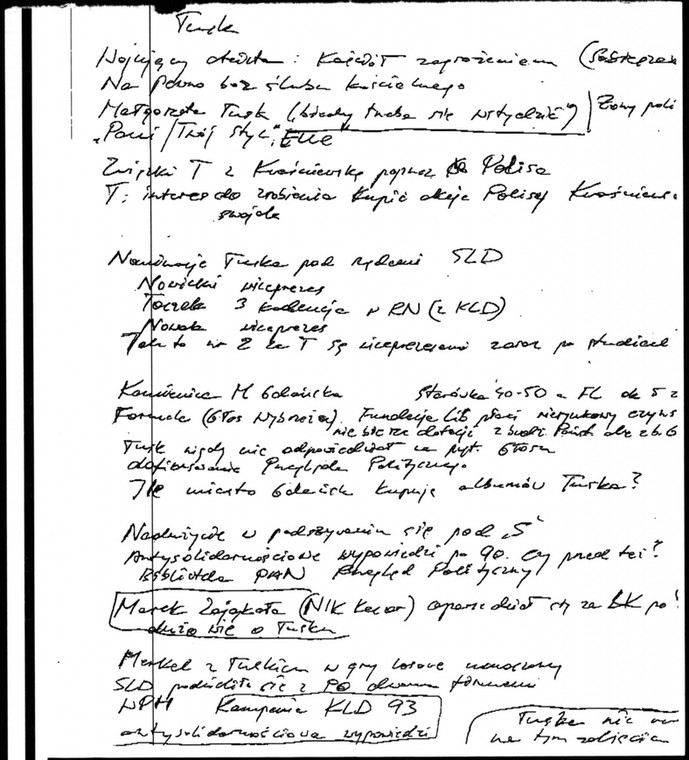 Tusk
Najwięcej : Kościół zagrożeniem
Na pewno bez ślubu kościelnego
Małgorzata Tusk (trzeba się wstydzić") Żony poli
"Pani / Twój Styl", "Elle"
Związki T z Kwaśniewską poprzez Polisa
T: interes do zrobienia kupić akcje Polisy Kwaśniews
swojak
Nominacje Tuska pod rządami SLD
Nowicki wiceprezes
3 kadencja w RN (z KLD)
Nowak wiceprezes
Jak to w 2 za T są wiceprezesami zaraz po studiach
Kamienica M Gdańska Starówka 40-50 a FL ok 5 z
Formuła (Głos Wybrzeża). Fundacja Lib płaci nierynkowy czyns
nie bierze dotacji z budż Państ ale z b. G
Tusk nigdy nie odpowiedział na pyt. Głosu
dofinansowanie Przeglądu Politycznego
Ile miasto Gdańsk kupuje albumów Tuska?
Nadużycie w podszywaniu się pod "S"
Antysolidarnościowe wypowiedzi po 90. Czy przed też?
Biblioteka PAN Przegląd Polityczny
Marek (NIK) opowiedział
dużo wie o Tusku
Merkel z Tuskiem w gry losowe
SLD podzieliła się z PO dwoma
Kampania KLD 93
antysolidarnościowe wypowiedzi
Tuska nie
na tym zdjęciu